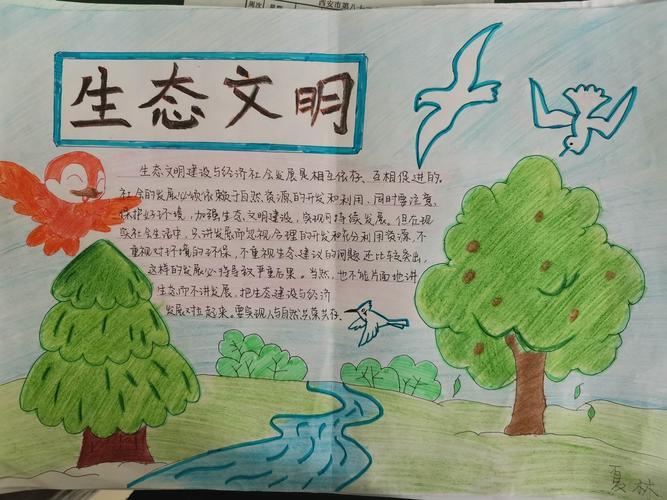 西安市第八十
周次
生态文明
生态文明建设与经济社会发展是相互依存、互相促进的。
社会的发展必须依赖于自然资源的开发和利用，同时要注意
保护好环境，加强生态文明建设，实现可持续发展。但在现
实社会生活中，只讲发展而忽视合理的开发和充分利用资源，不
重视对环境的环保，不重视生态建议的问题还比较突出，
这样的发展必将导致严重后果。当然，也不能片面地讲
生态而不讲发展，把生态建设与经济
发展对立起来。要实现人与自然共荣共存。
夏林